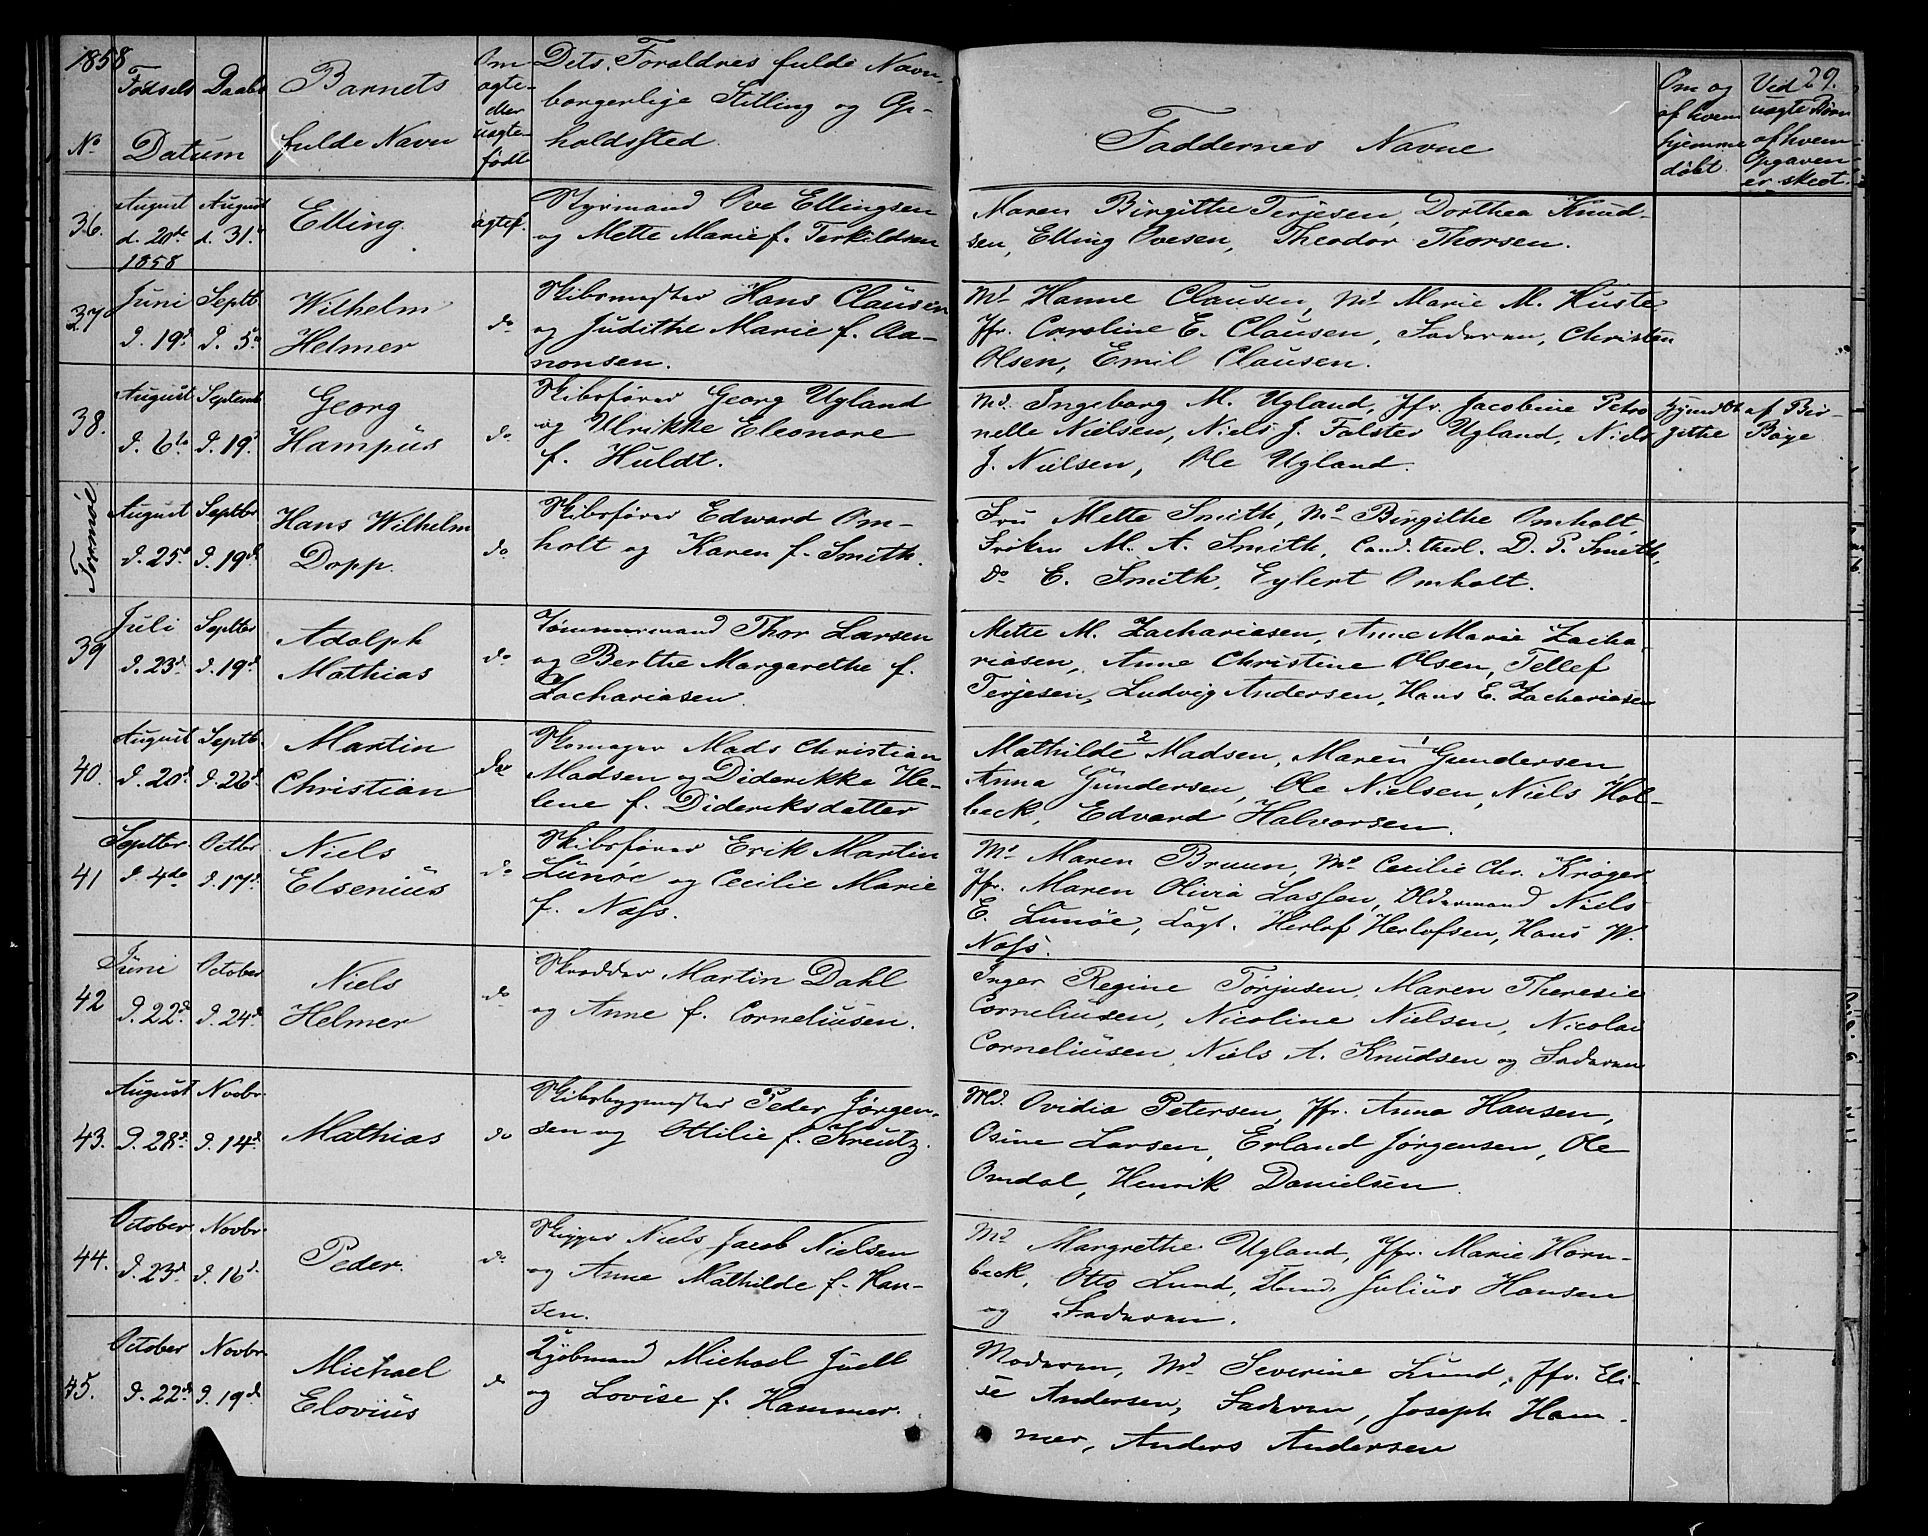 1858
29.
No
Fødsels Daabs
Datum
Barnets
fulde Navn
Om
ægte
eller
uægte
født
Dets Foraldres fulde Navn
borgerlige Stilling og Op-
holdssted.
Faddernes Navne
Om og
af hvem
hjemme
døbt
Ved
uægte Børn
af hvem
Opgaven
er skeet.
36. August d. 20de 1858 August d. 31.
Elling.
ægtef.
Styrmand Ove Ellingsen
og Mette Marie f. Terkildsen
Maren Birgithe Terjesen, Dorthea Knud-
sen, Elling Ovesen, Theodor Thorsen.
37 Juni d. 19d Septb. d. 5te
Wilhelm
Helmer
do
Skibsmægler Hans Clausen
og Judithe Marie f. Aa-
nonsen.
Md. Hanne Clausen, Md. Marie M. Huste
Jfr. Caroline E. Clausen, Faderen, Christen
Olsen, Emil Clausen.
38. August d. 6te Septemb d. 19d
Georg
Hampus
do
Skibsfører Georg Ugland
og Ulrikke Eleonore
f. Huldt.
Md. Ingeborg M. Ugland, Jfr. Jacobine Petro
nelle Nielsen, Niels J. Falster Ugland, Niels
J. Nielsen, Ole Ugland.
hjemdbt af Bir-
githe Bøye
Tornøe
August d. 25d Septbr d. 19d
Hans Wilhelm
Dopp.
do
Skibsfører Edward Om-
holt og Karen f. Smith.
Fru Mette Smith, Md. Birgithe Omholt,
Frøken M. A. Smith, Cand. theol. D. P. Smith,
do E. Smith, Eylert Omholt.
39 Juli d. 23d Septbr d. 19d
Adolph
Mathias
do
Tømmermand Thor Larsen
og Berthe Margarethe f.
Zachariasen.
Mette M. Zachariasen, Anne Marie Zacha-
riasen, Anne Christine Olsen, Tellef
Terjesen, Ludvig Andersen, Hans E. Zachariasen
40. August d. 20d Septb. d. 26d
Martin
Christian
do
Skomager Mads Christian
Madsen og Diderikke He-
lene f. Dideriksdatter
Mathilde 2 Madsen, Maren 1 Gundersen,
Anna Gundersen, Ole Nielsen, Niels Hol-
beck, Edvard Halvorsen.
41 Septbr d. 4de Octbr d. 17d
Niels
Elsenius
do
Skibsfører Erik Martin
Lunøe og Cecilie Marie
f. Næss.
Md. Maren Bruun, Md. Cecilie Chr. Krøger
Jfr. Maren Olivia Lassen, Oldermand Niels
E. Lunøe, Capt. Herlof Herlofsen, Hans W.
Næss.
42 Juni d. 22d October d. 24d
Niels
Helmer
do
Skrædder Martin Dahl
og Anne f. Corneliusen.
Inger Regine Torjusen, Maren Theresie
Corneliusen, Nicoline Nielsen, Nicolai
Corneliusen, Niels A. Knudsen og Faderen
43. August d. 28d Novbr. d. 14d
Mathias
do
Skibsbygmester Peder Jørgen-
sen og Ottilie f. Kreutz.
Md. Ovidia Petersen, Jfr. Anna Hansen,
Osine Larsen, Erland Jørgensen, Ole
Omdal, Henrik Danielsen.
44. October d. 23d Novbr d. 16d
Peder.
do
Skipper Niels Jacob Nielsen
og Anne Mathilde f. Han-
sen.
Md. Margrethe Ugland, Jfr. Marie Horn-
beck, Otto Lund, Julius Hansen
og Faderen.
45. October d. 22d Novbr d. 19d
Michael
Elovius
do
Kjøbmand Michael Juell
og Lovise f. Hammer.
Moderen, Md. Severine Lund, Jfr. Eli-
se Andersen, Faderen, Joseph Ham-
mer, Anders Andersen